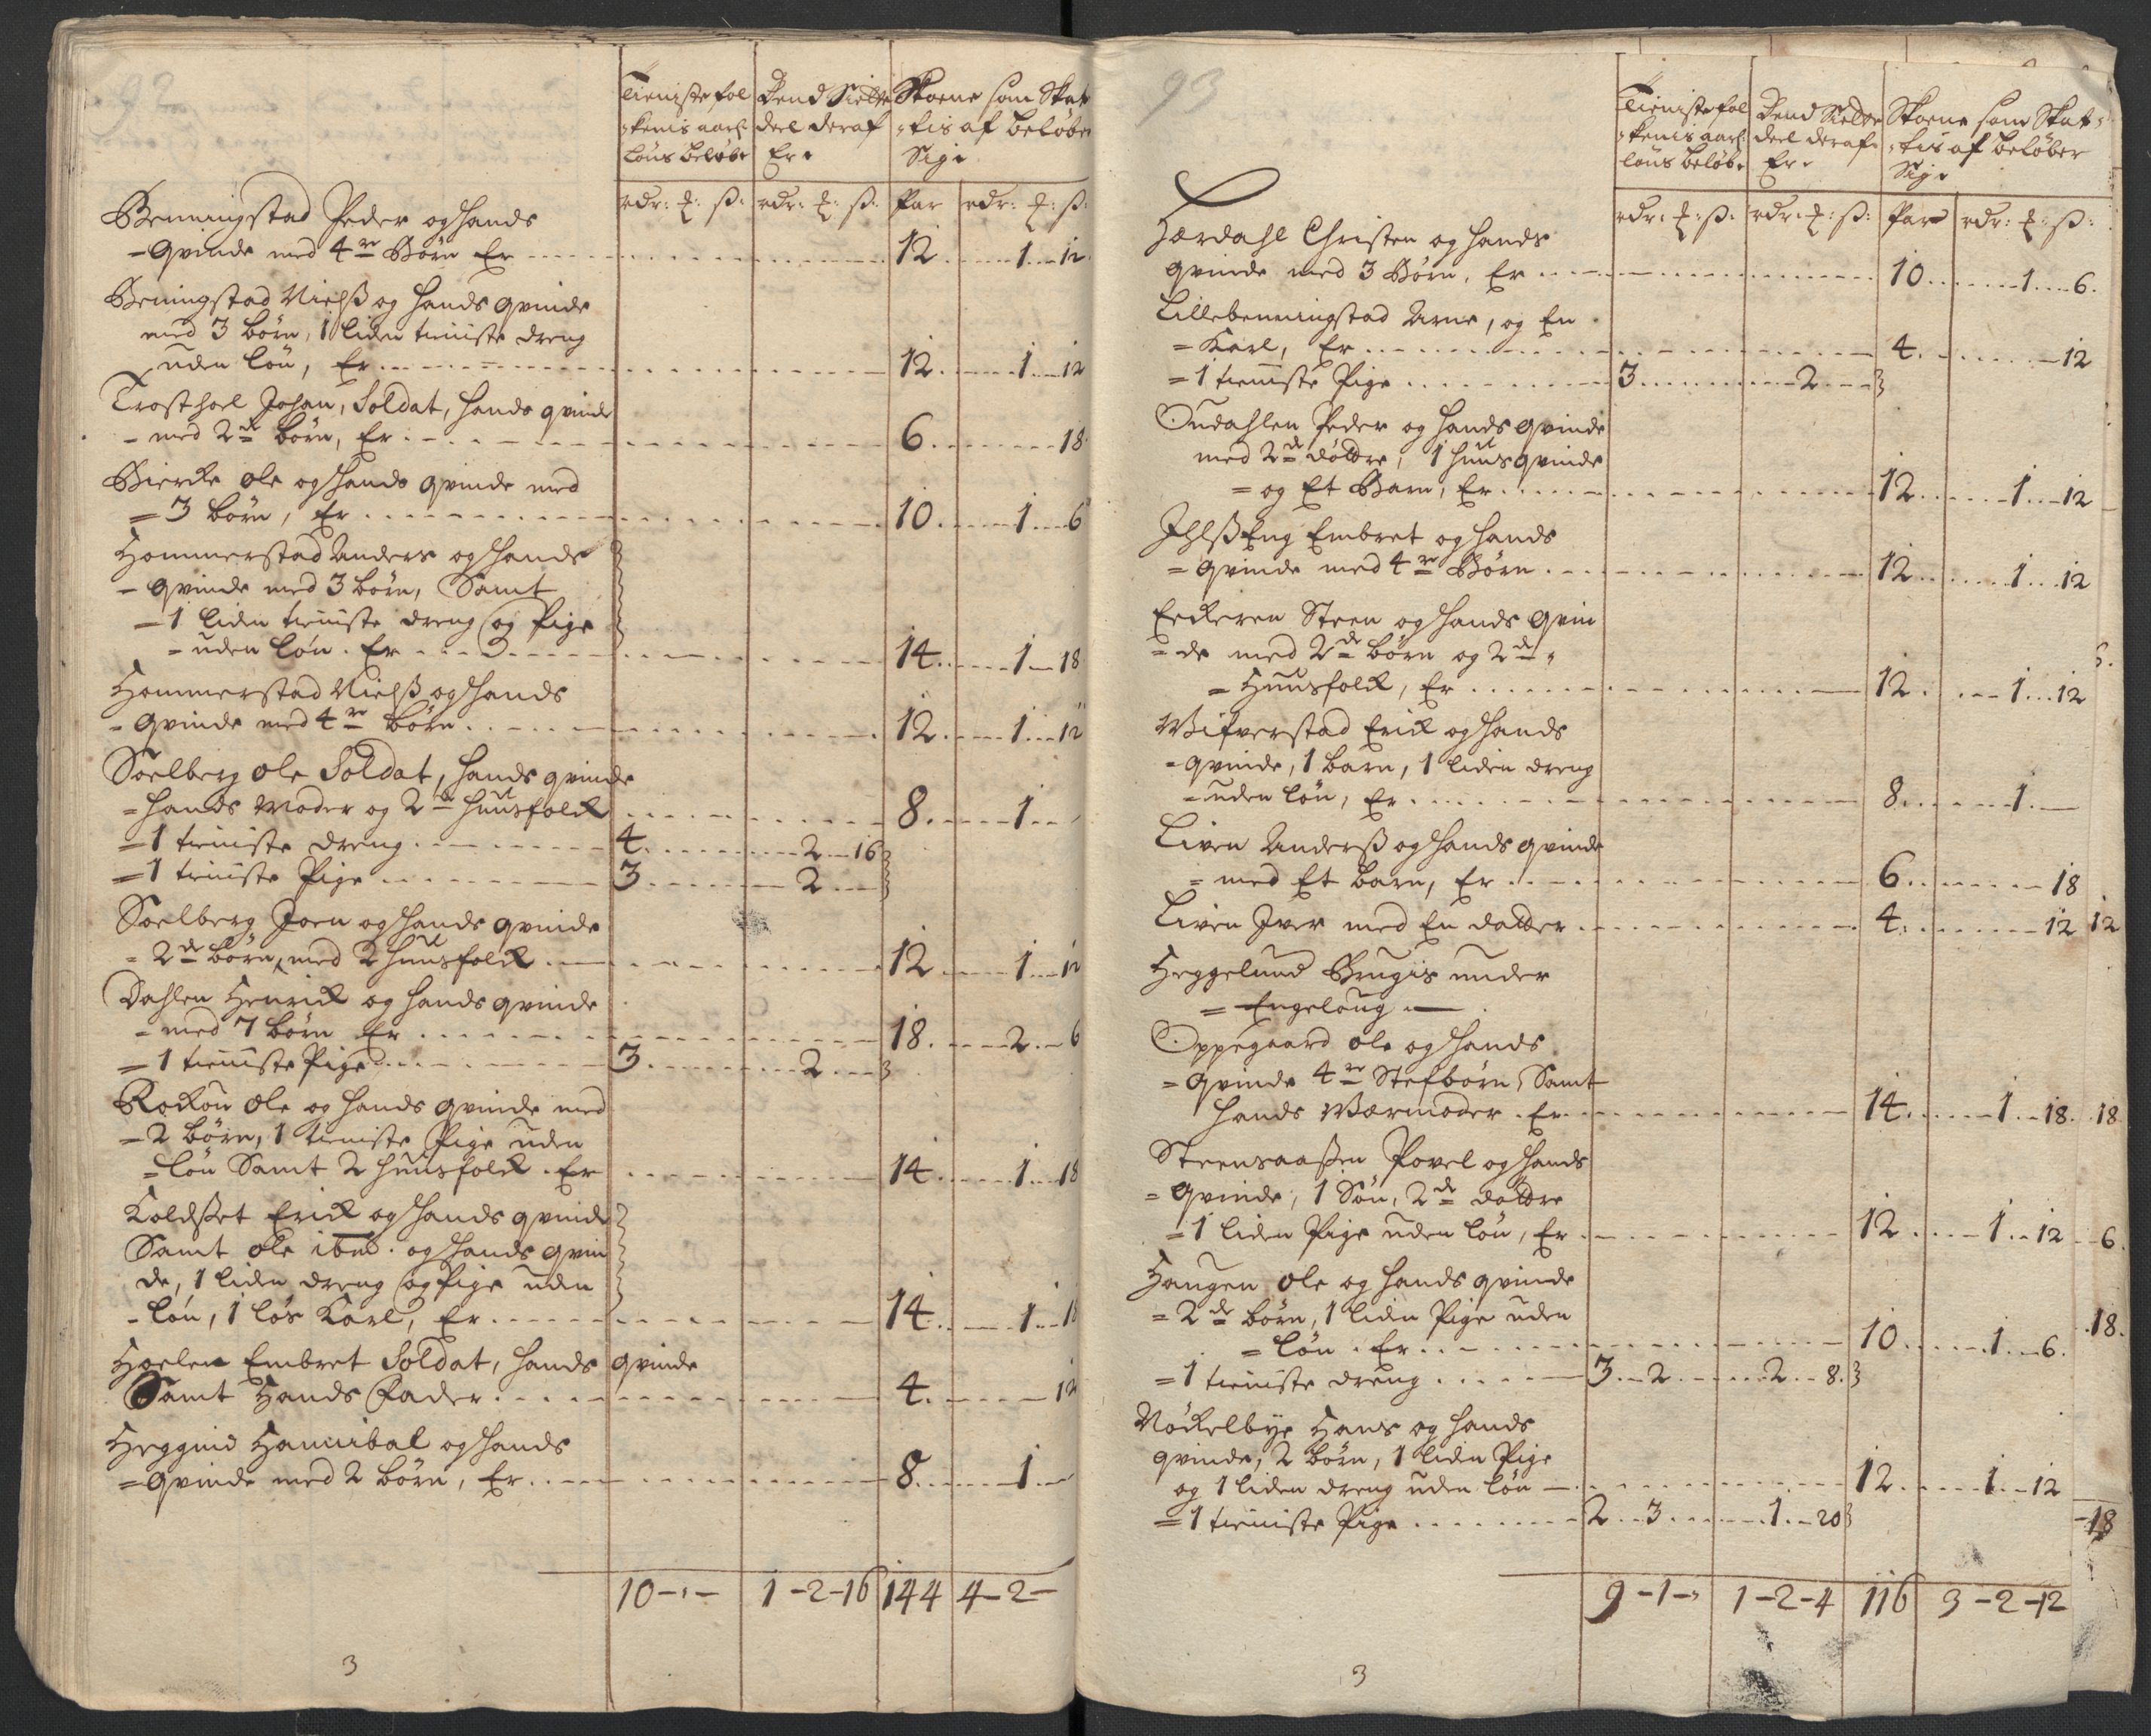 92
Tieniste fol Dend Siette Skoene som Skat
-kenis aarl: deel deraf -tis af beløber
Løns beløb. Er. Sig.
rdr: ₰: ß: rdr: ₰: ß: Par rdr: ₰: ß:
Benningstad Peder og Hands
- qvinde med 4re Børn Er 12 1 12
Beningstad Nielß og Hands qvinde
med 3 børn, 1 liden tieniste dreng
uden løn, Er 12 1 12
Trosthoel Johan, Soldat, Hands qvinde
- med 2de børn, Er 6 18
Biercke Ole og Hands qvinde med
= 3 børn, Er 10 1 6
Hommerstad Anders og Hands
- qvinde med 3 børn, Samt
- 1 liden tieniste dreng og Pige
- uden løn. Er 14 1 18
Hommerstad Nielß og Hands
- qvinde med 4re børn 12 1 12
Soelberg Ole Soldat, Hands qvinde
= Hands Moder og 2de Huusfolck 8 1
= 1 tieniste dreng 4 2 16
= 1 tieniste Pige 3 2
Soelberg Joen og Hands qvinde
= 2de børn, med 2 Huusfolck 12 1 12
Dahlen Henrick og Hands qvinde
- med 7 børn Er 18 2 6
= 1 tieniste Pige 3 2
Rockou Ole og Hands qvinde med
= 2 børn, 1 tieniste Pige uden
= løn Samt 2 Huusfolck. Er 14 1 18
Koldßet Erick og Hands qvinde
Samt Ole ibm. og Hands qvin
de, 1 liden dreng og Pige uden
- løn, 1 løs Karl, Er 14 1 18
Hoelen Embret Soldat, Hands qvinde
Samt Hands Fader 4 12
Heggnid Hannibal og Hands
= qvinde med 2 børn, Er 8 1
10 - , - 1 - 2 - 16 144 4 - 2 -
3
93
Tieniste fol Dend Siette Skoene som Skat-
-kenis aarl: deel deraf -tis af beløber
løns beløb. Er. Sig.
rdr: ₰: ß: rdr: ₰: ß: Par rdr: ₰: ß:
Hærdahl Christen og Hands
qvinde med 3 Børn. Er 10 1 6
Lillebenningstad Arne, og En
= Karl, Er 4 12
= 1 tieniste Pige 3 2
Oudahlen Peder og Hands qvinde
med 2de døttre, 1 huusqvinde
= og Et Barn, Er 12 1 12
Ihlßeng Embret og Hands
= qvinde med 4re Børn 12 1 12
Eeckeren Steen og Hands qvin
= de med 2de børn og 2de
= Huusfolck, Er 12 1 12
Wifverstad Erick og Hands
- qvinde, 1 barn, 1 liden dreng
- uden løn, Er 8 1
Liven Anderß og Hands qvinde
= med Et barn, Er 6 18
Liven Iver med En datter 4 12
Heggelund Brugis under
= Engeloug
Oppegaard Ole og Hands
= qvinde 4re Stefbørn, Samt
Hands Værmoder. Er 14 1 18
Steensaaßen Povel og Hands
= qvinde, 1 Søn, 2de døttre
= 1 liden Pige uden løn, Er 12 1 12
Haugen Ole og Hands qvinde
= 2de børn, 1 liden Pige uden
= løn. Er 10 1 6
= 1 tieniste dreng 3 2 2 8
Nøckelbye Hans og Hands
qvinde, 2 børn, 1 liden Pige
og 1 liden dreng uden løn 12 1 12
= 1 tieniste Pige 2 3 1 20
9 - 1 - , 1 - 2 - 4 116 3 - 2 - 12
3
12
18
6
18
18